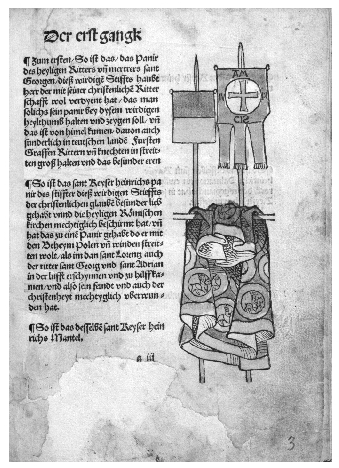 Der erst gangk
¶ Zum ersten/ So ist das/ das Panir
des heyligen Ritters vñ merterers sant
Georgen/ diß wirdigē Stiffts haubt
herr der mit seiner christenlichē Ritter
schafft wol verdyent hat/ das man
solichs sein panir bey dysem wirdigen
heylthumb halten vnd zeygen soll/ vñ
das ist von himel kumen/ dauon auch
sunderlich in teutschen landē Fursten
Graffen Rittern vñ knechten in streit
ten groß halten vnd das besunder eren
¶ So ist das sant Keyser heinrichs pa
nir des stiffter diß wirdigen Stiffts
der christenlichen glaubē besunder lieb
gehabt vnnd die heyligen Römischen
kirchen mechtiglich beschirmt hat/ vñ
hat das zu einē Panir gehabt do er mit
den Beheym Polen vñ winden streit
ten wolt/ als im dan sant Lorentz auch
der ritter sant Georg vnd sant Adrian
in der lufft erschynnen vnd zu hilff ka
men/ vnd also sein feindt vnd auch der
christenheyt mechtyglich vberwun
den hat.
¶ So ist das desselbē sant Keyser hein
richs Mantel.
a iij
MA
CIS
3